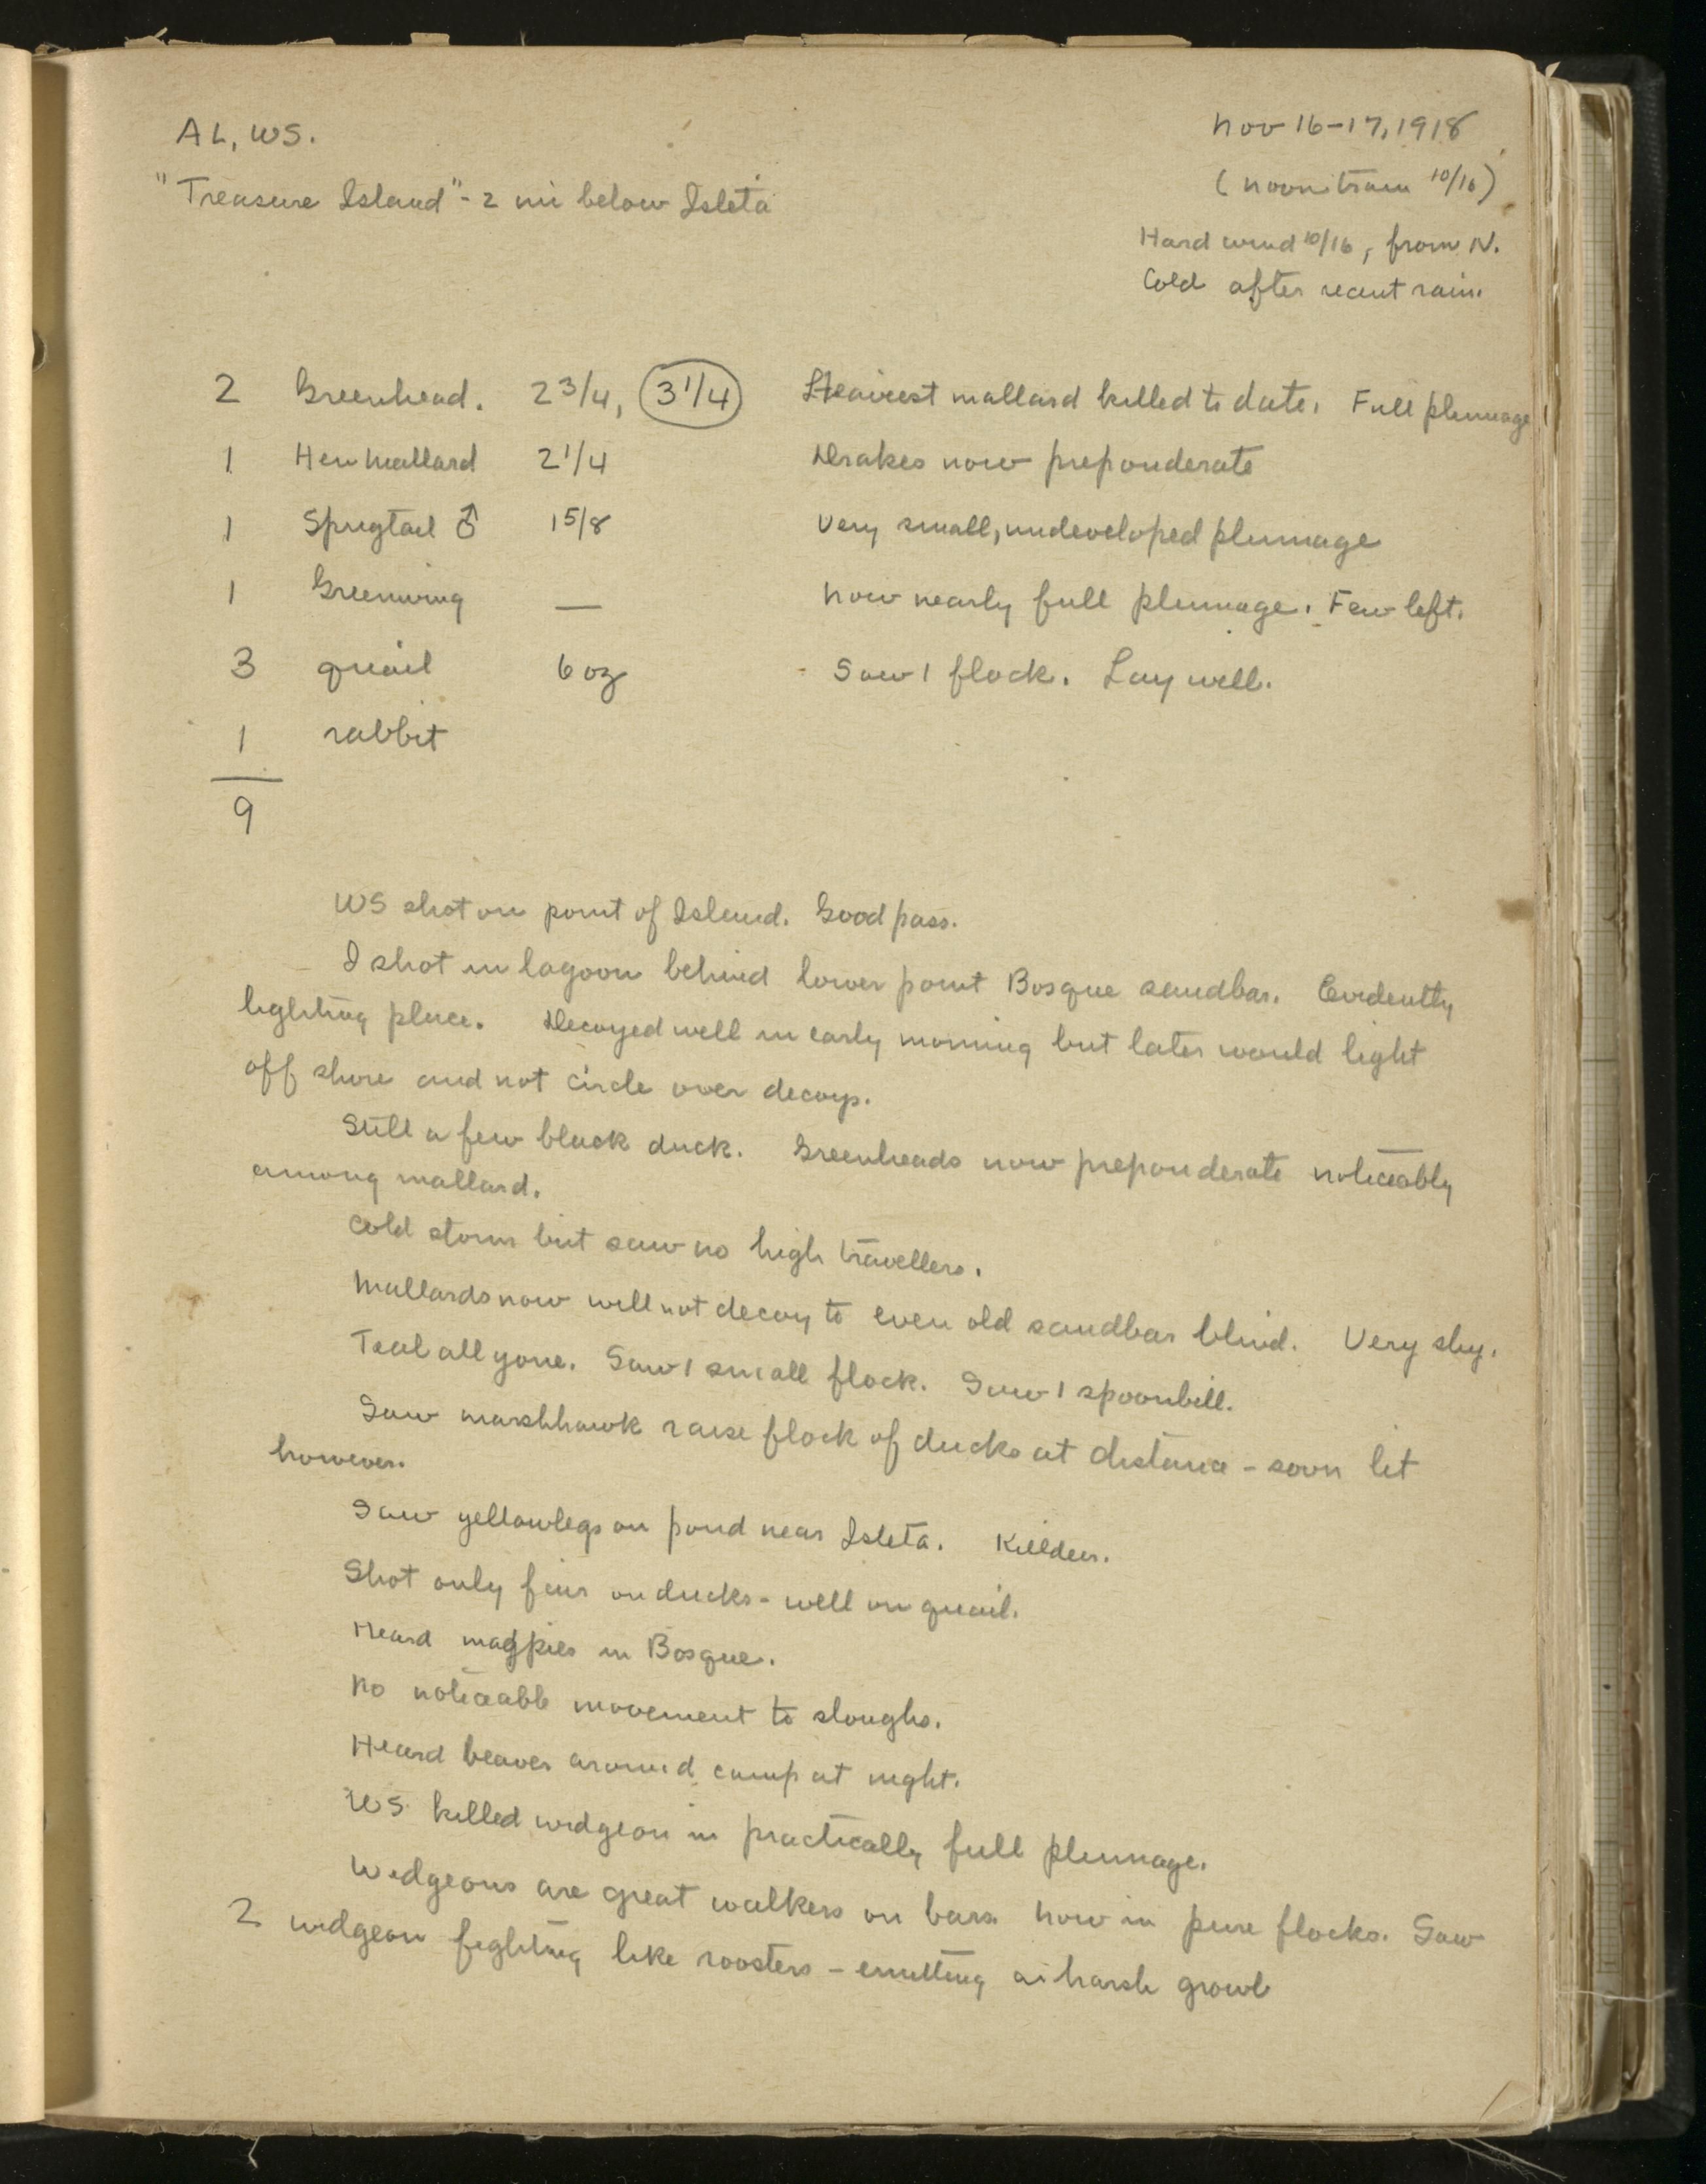 AL, WS.
Nov 16-17, 1918
"Treasure Island" - 2 mi below Isleta
(noon train 10/16)
Hard wind 10/16, from N.
Cold after recent rain.
2 Greenhead. 2 3/4, 3 1/4 Heaviest mallard killed to date. Full plumage
1 Hen Mallard 2 1/4 Drakes now preponderate
1 Sprigtail ♂ 1 5/8 Very small, undeveloped plumage
1 Greenwing — Now nearly full plumage. Few left.
3 quail 6 oz Saw 1 flock. Lay well.
1 rabbit
9
WS shot on point of Island. Good pass.
I shot in lagoon behind lower point Bosque sandbar. Evidently
lighting place. Decoyed well in early morning but later would light
off shore and not circle over decoys.
Still a few black duck. Greenheads now preponderate noticeably
among mallard.
Cold storm but saw no high travellers.
Mallards now will not decoy to even old sandbar blind. Very shy.
Teal all gone. Saw 1 small flock. Saw 1 spoonbill.
Saw marshhawk raise flock of ducks at distance - soon lit
however.
Saw yellowlegs on pond near Isleta. Killdeer.
Shot only fair on ducks - well on quail.
Heard magpies in Bosque.
No noticeable movement to sloughs.
Heard beaver around camp at night.
WS killed widgeon in practically full plumage.
Widgeons are great walkers on bars. Now in pure flocks. Saw
2 widgeon fighting like roosters - emitting a harsh growl